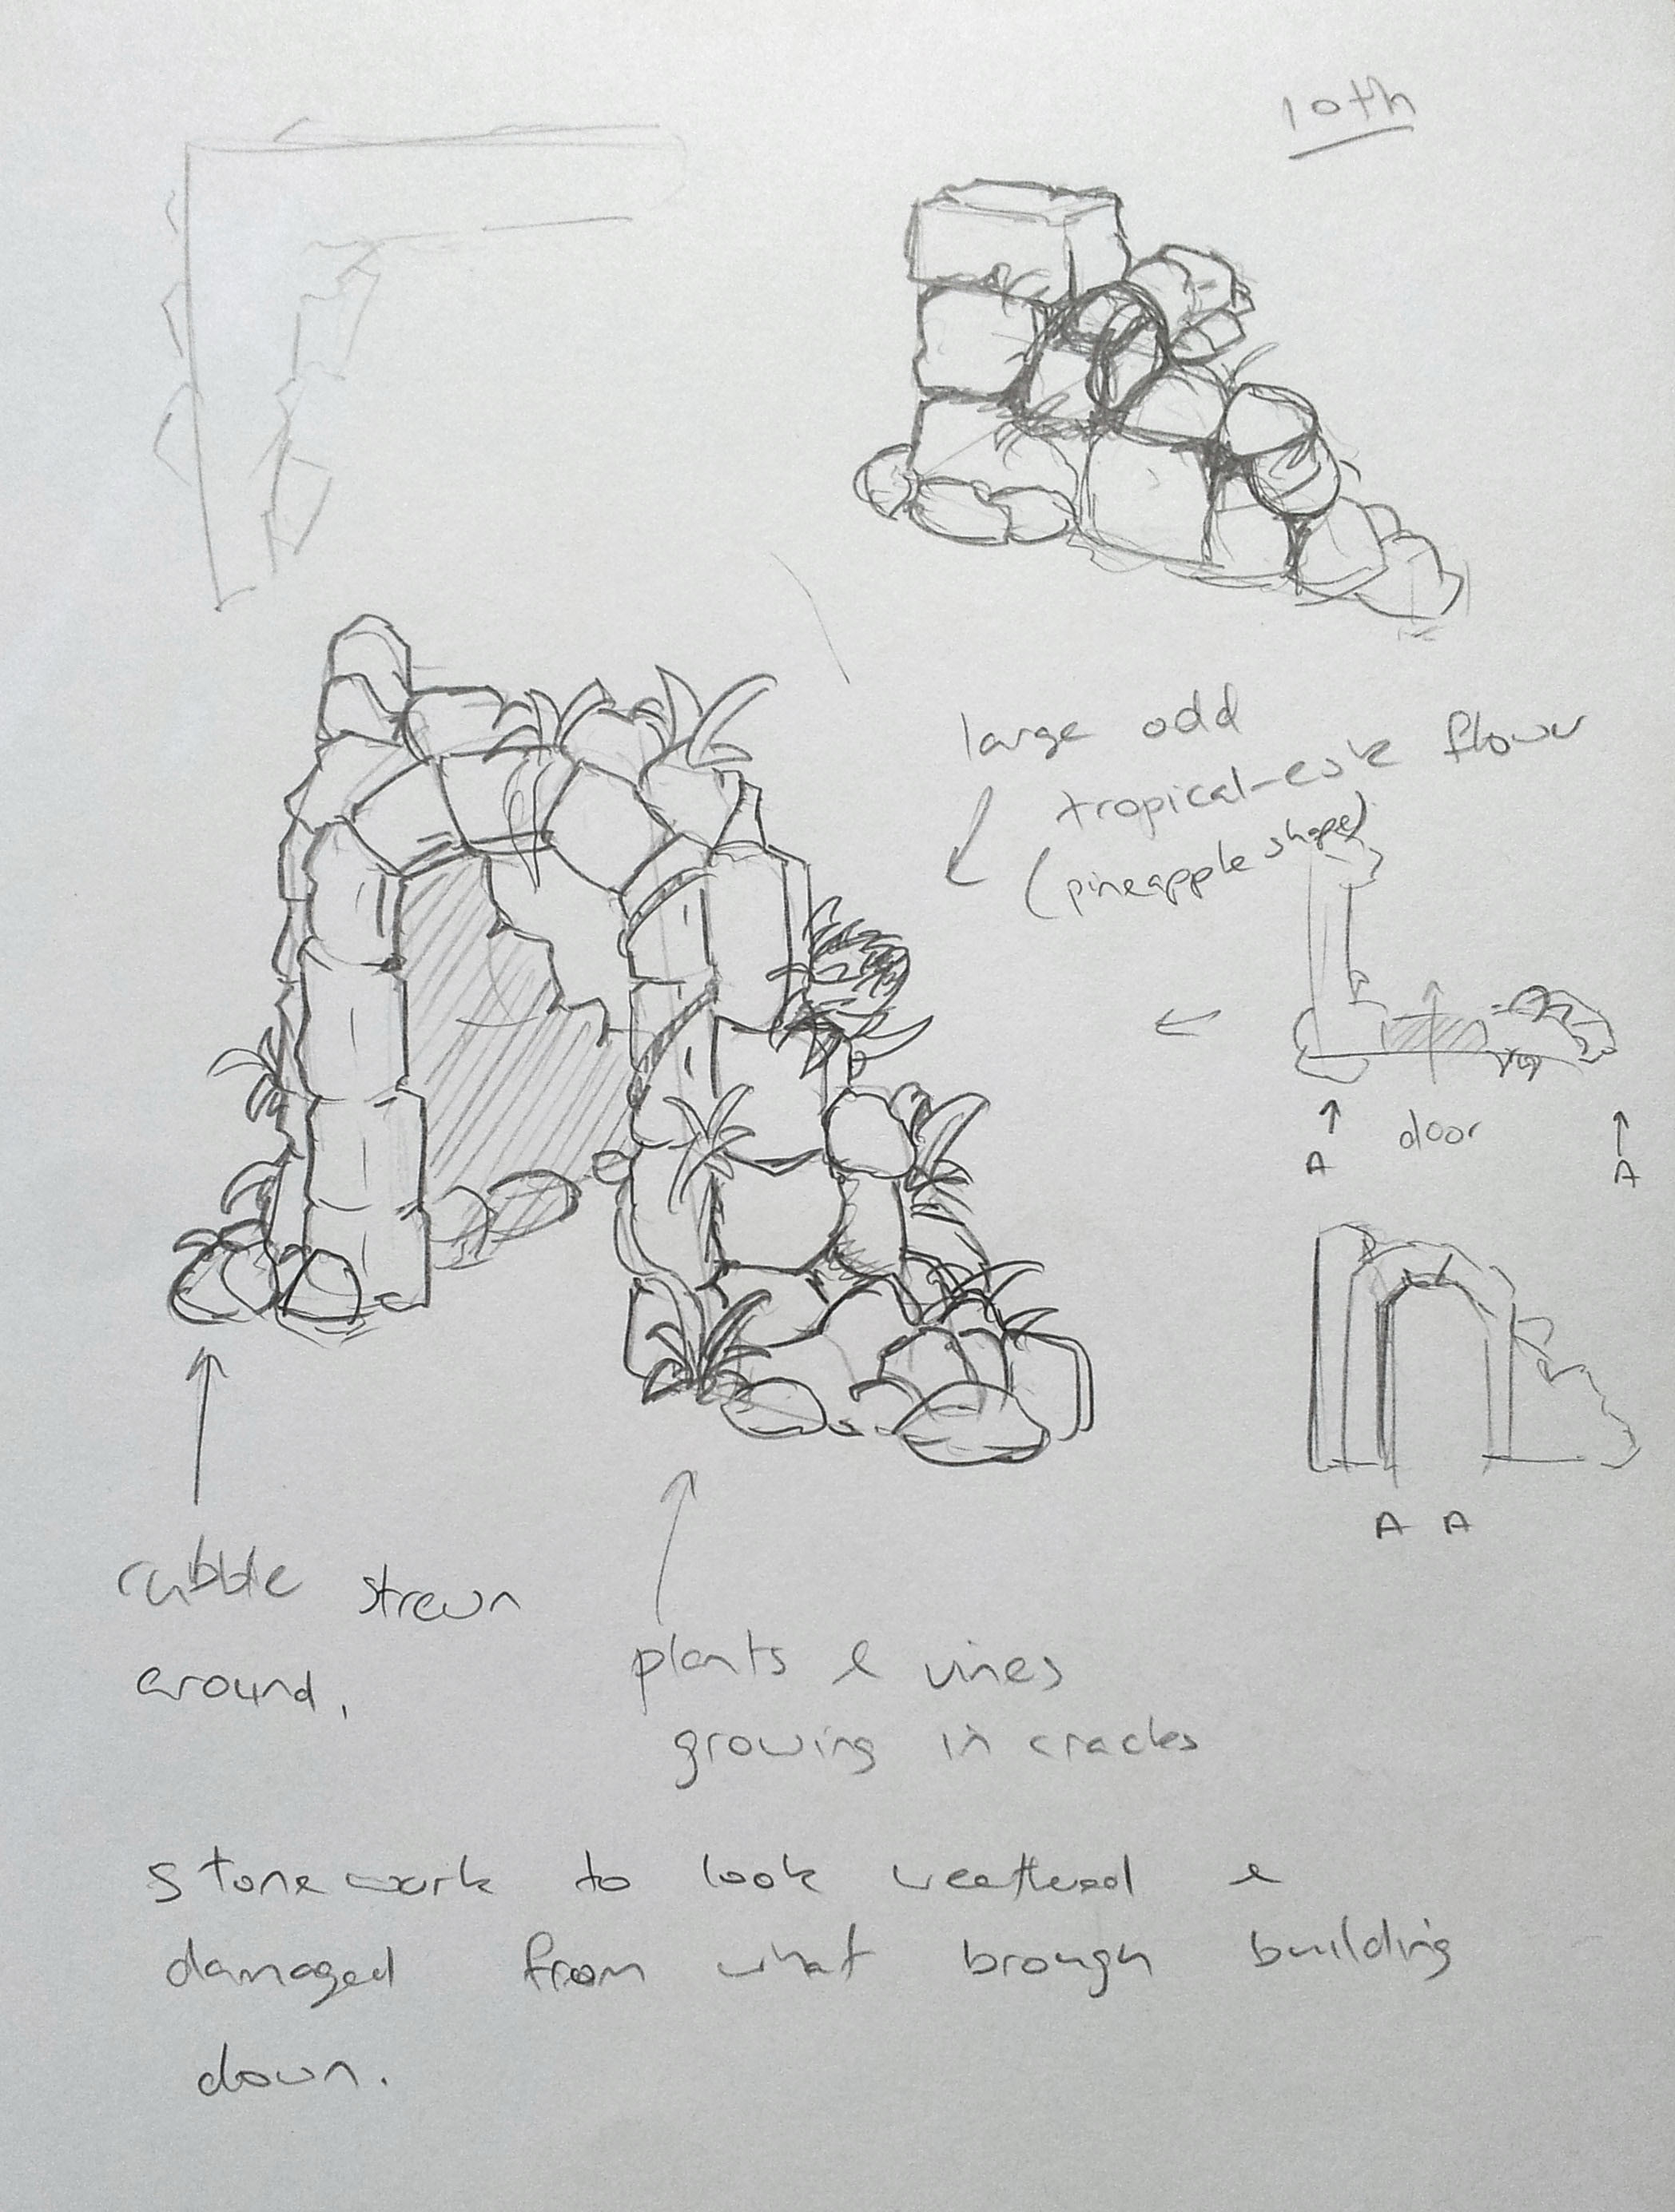 10th
large odd
tropical-esk flower
(pineapple shape)
door
A
A
A A
rubble strewn
around.
plants & vines
growing in cracks
stonework to look weatherd &
damaged from what brough building
down.